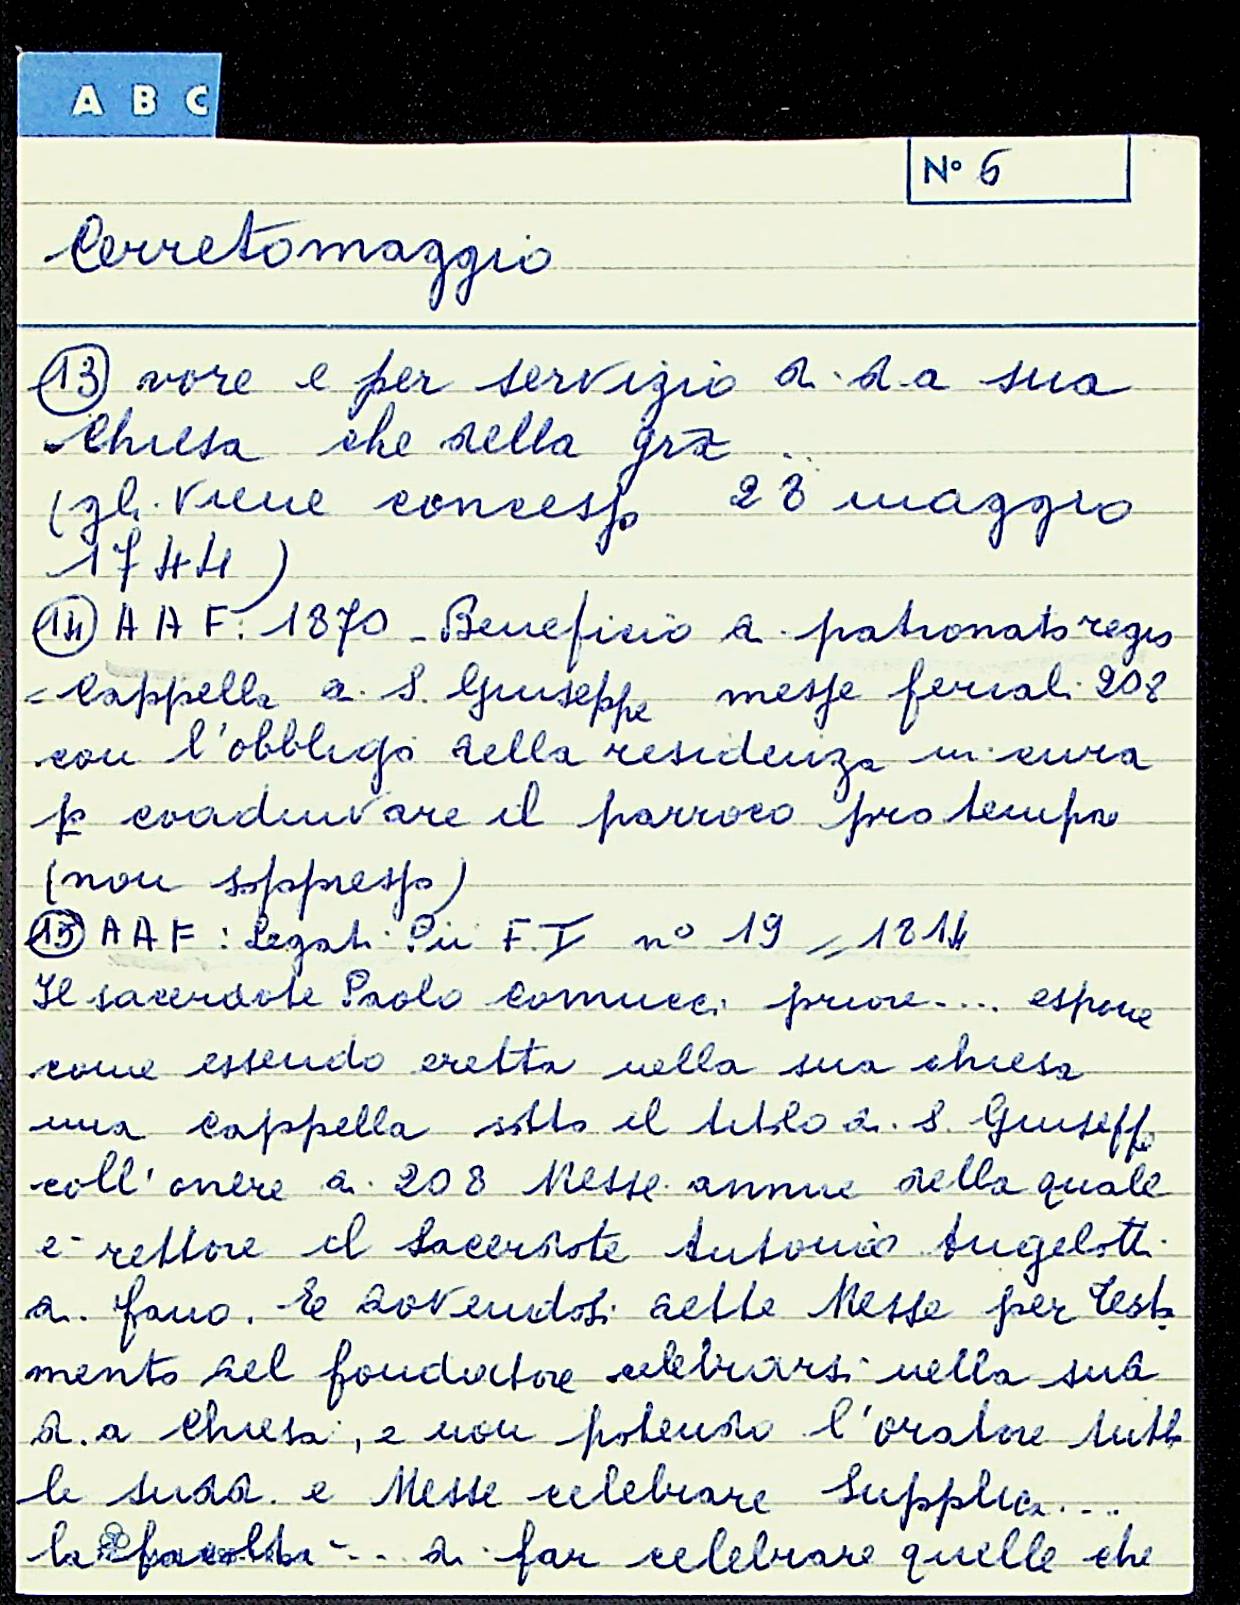 A B C
N° 6
Cerretomaggio
(13) vore e per servizio di d.a sua
Chiesa che della grã ...
(gli viene concesso 28 maggio
1744)
(14) A A F: 1870 - Beneficio di patronato regio
= Cappella di S. Giuseppe messe feriali 208
con l'obbligo della residenza in cura
p coadiuvare il parroco pro tempore
(non soppresso)
(15) A A F: Legati Pii F. I n° 19 = 1814
Il sacerdote Paolo Comucci priore .... espone
come essendo eretta nella sua chiesa
una cappella sotto il titolo di S. Giuseppe
coll'onere di 208 Messe annue della quale
e- rettore il Sacerdote Antonio Angelotti
di Fano. E dovendosi dette Messe per testa
mento del fondatore celebrarsi nella sua
d.a Chiesa, e non potendo l'oratore tutte
le sudd.e Messe celebrare Supplica ....
la facoltà ... di far celebrare quelle che